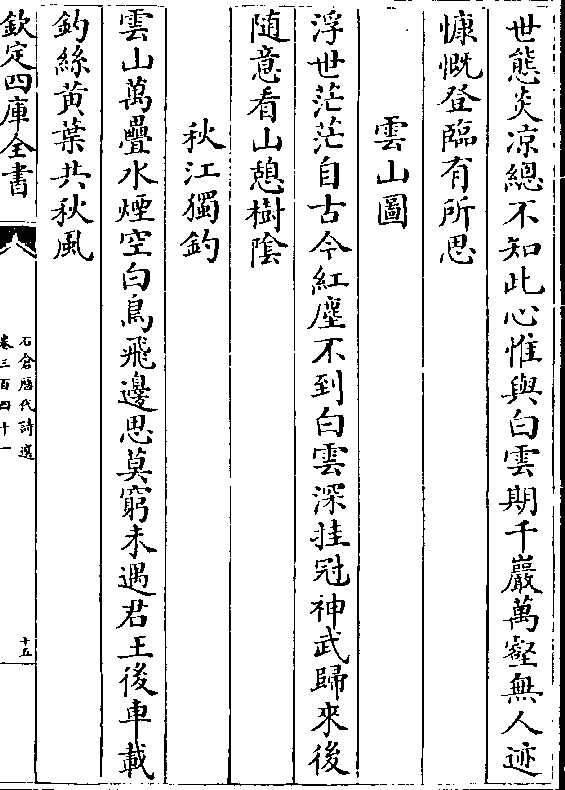 世態炎凉總不知此心惟與白雲期千巖萬壑無人迹
慷慨登臨有所思
雲山圖
浮世茫茫自古今紅塵不到白雲深挂冠神武歸來後
随意看山憩樹陰
秋江獨釣
雲山萬疊水煙空白鳥飛邊思莫窮未遇君王後車載
釣絲黄葉共秋風
欽定四庫全書
石倉歴代詩選
卷三百四十一
十五